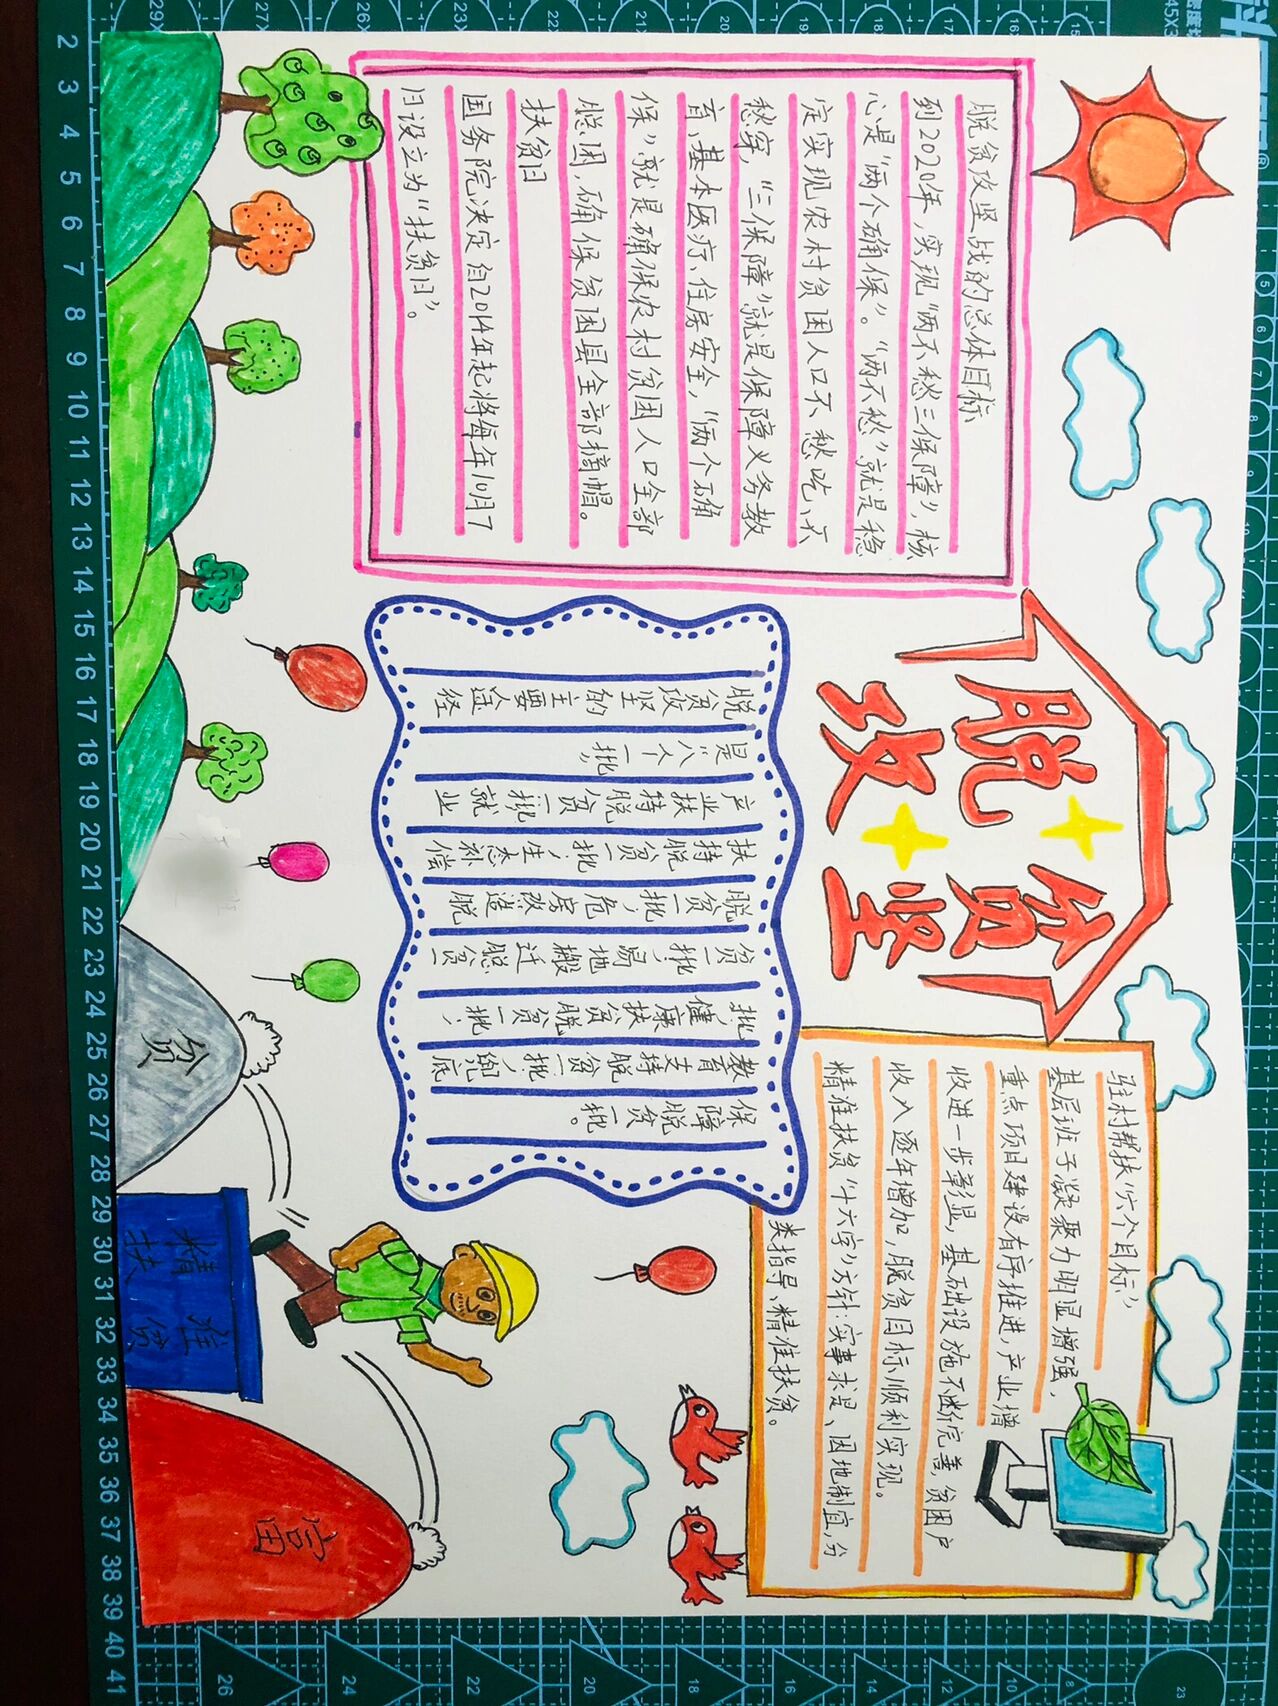 脱贫
攻坚
脱贫攻坚战的总体目标
到2020年，实现“两不愁三保障”，核
心是“两个确保”。“两不愁”就是稳
定实现农村贫困人口不愁吃、不
愁穿，“三保障”就是保障义务教
育、基本医疗、住房安全，“两个确
保”就是确保农村贫困人口全部
脱困，确保贫困县全部摘帽。
扶贫日
国务院决定自2014年起将每年10月7
日设立为“扶贫日”。
脱贫攻坚的主要途径
是“八个一批”
产业扶持脱贫一批、就业
扶持脱贫一批、生态补偿
脱贫一批、危房改造脱
贫一批、易地搬迁脱贫一
批、健康扶贫脱贫一批、
教育支持脱贫一批、兜底
保障脱贫一批。
驻村帮扶“六个目标”
基层班子凝聚力明显增强，
重点项目建设有序推进，产业增
收进一步彰显，基础设施不断完善，贫困户
收入逐年增加，脱贫目标顺利实现。
精准扶贫“十六字”方针：实事求是、因地制宜，分
类指导、精准扶贫。
贫
精准
扶贫
富